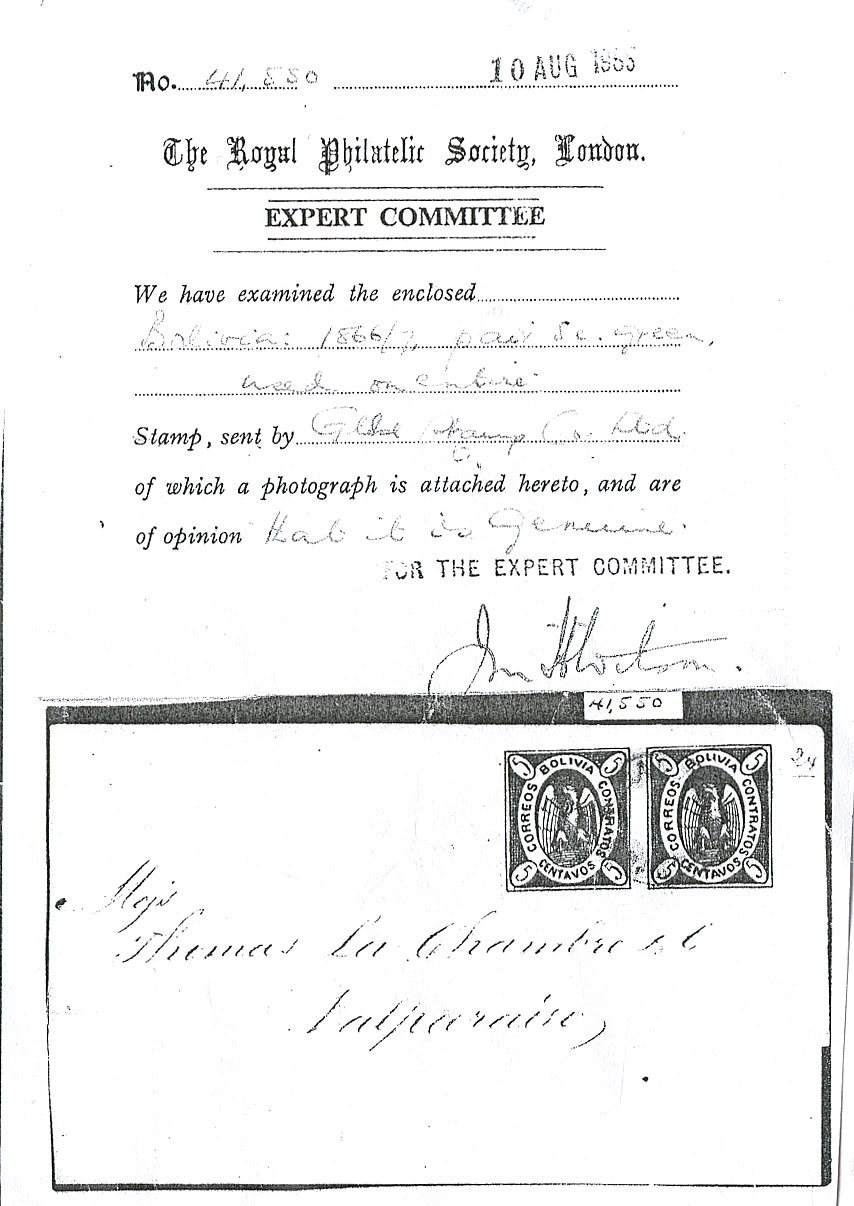 No. 41,550 10 AUG 1955
The Royal Philatelic Society, London.
EXPERT COMMITTEE
We have examined the enclosed
Bolivia: 1866/7, pair 5c. green,
used on entire
Stamp, sent by Globe Stamp Co. Ltd.
of which a photograph is attached hereto, and are
of opinion that it is Genuine.
FOR THE EXPERT COMMITTEE.
41,550
5 BOLIVIA 5 CORREOS CONTRATOS 5 CENTAVOS 5
5 BOLIVIA 5 CORREOS CONTRATOS 5 CENTAVOS 5
24
Thomas La Chambre & C
Valparaiso